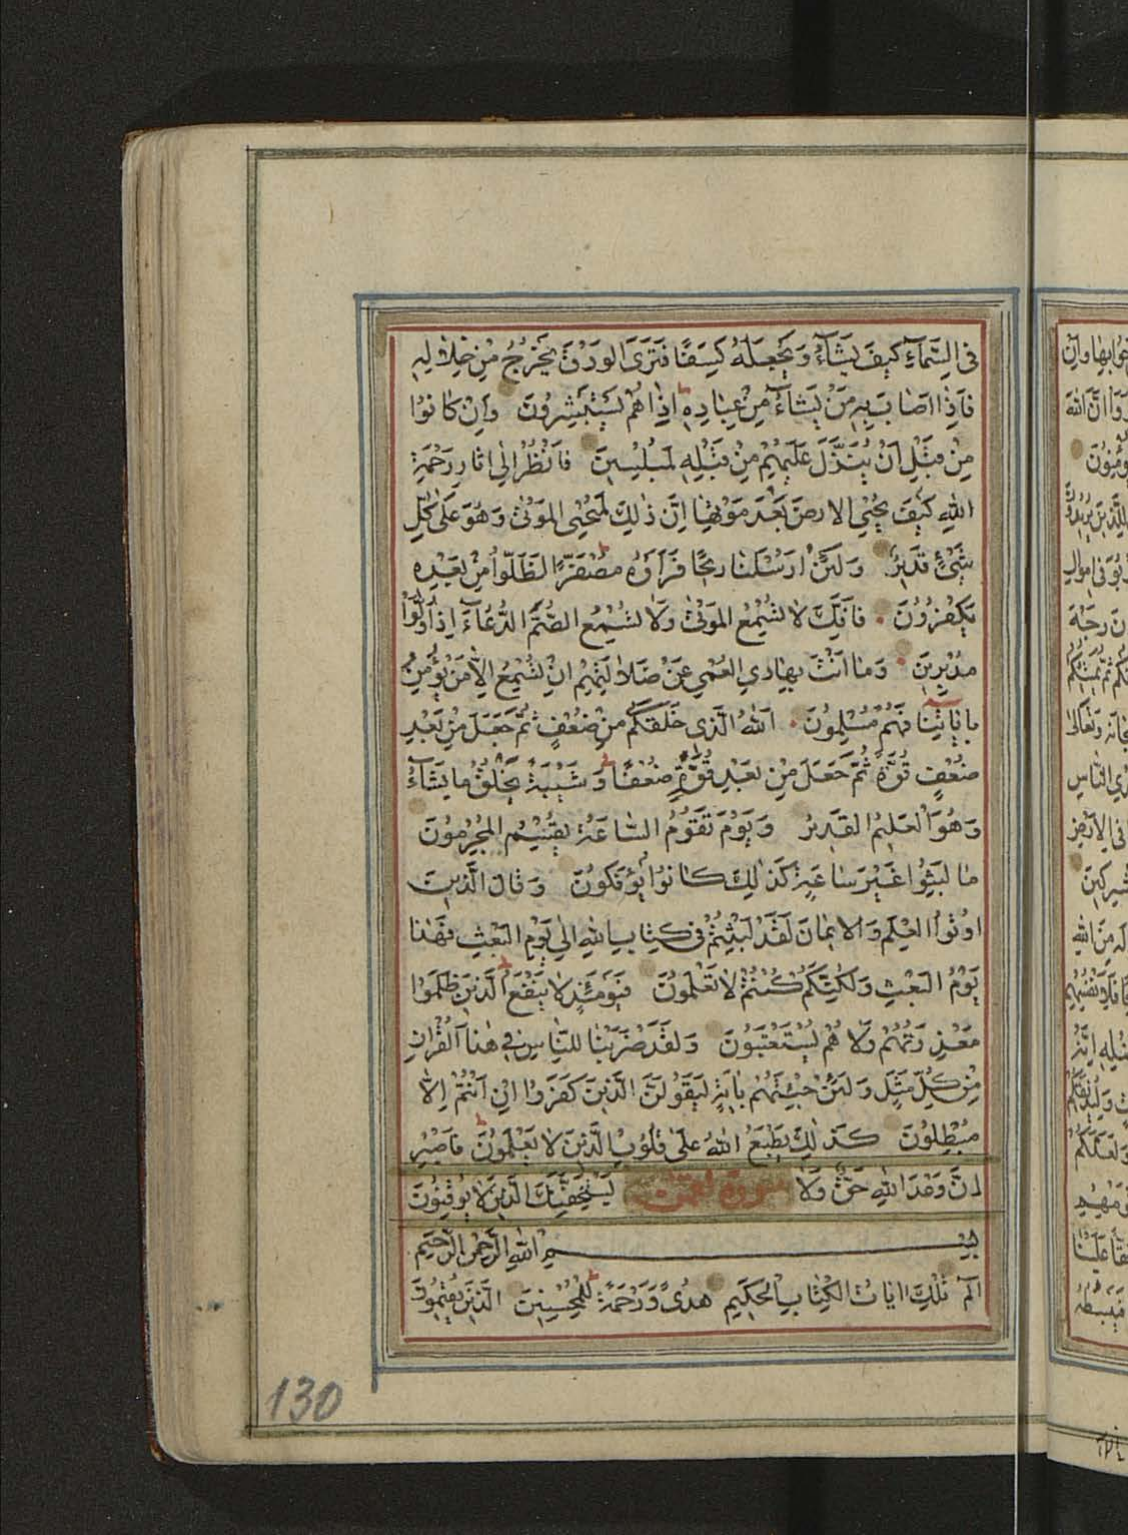 فِي السَّمَآءِ كَيْفَ يَشَآءُ وَيَجْعَلُهُ كِسَفًا فَتَرَى الوَدْقَ يَخْرُجُ مِنْ خِلَالِهِ
فَاِذَا اَصَابَ بِهِ مَنْ يَشَآءُ مِنْ عِبَادِهِ اِذَا هُمْ يَسْتَبْشِرُونَ وَاِنْ كَانُوا
مِنْ قَبْلِ اَنْ يُنَزَّلَ عَلَيْهِمْ مِنْ قَبْلِهِ لَمُبْلِسِينَ فَانْظُرْ اِلٰي اٰثَارِ رَحْمَةِ
اللهِ كَيْفَ يُحْيِي الارضَ بَعْدَ مَوْتِهَا اِنَّ ذٰلِكَ لَمُحْيِي المَوْتٰى وَهُوَ عَلٰى كُلِّ
شَيْئٍ قَدِيرٌ وَلَئِنْ اَرْسَلْنَا رِيحًا فَرَاَوْهُ مُصْفَرًّا لَظَلُّوا مِنْ بَعْدِهِ
يَكْفُرُونَ فَاِنَّكَ لَا تُسْمِعُ المَوْتٰى وَلَا تُسْمِعُ الصُّمَّ الدُّعَآءَ اِذَا وَلَّوْا
مُدْبِرِينَ وَمَا اَنْتَ بِهَادِي العُمْيِ عَنْ ضَلَالَتِهِمْ اِنْ تُسْمِعُ اِلَّا مَنْ يُؤْمِنُ
بِاٰيَاتِنَا فَهُمْ مُسْلِمُونَ اَللهُ الَّذِي خَلَقَكُمْ مِنْ ضُعْفٍ ثُمَّ جَعَلَ مِنْ بَعْدِ
ضُعْفٍ قُوَّةً ثُمَّ جَعَلَ مِنْ بَعْدِ قُوَّةٍ ضُعْفًا وَشَيْبَةً يَخْلُقُ مَا يَشَآءُ
وَهُوَ العَلِيمُ القَدِيرُ وَيَوْمَ تَقُومُ السَّاعَةُ يُقْسِمُ المُجْرِمُونَ
مَا لَبِثُوا غَيْرَ سَاعَةٍ كَذٰلِكَ كَانُوا يُؤْفَكُونَ وَقَالَ الَّذِينَ
اوُتُوا العِلْمَ وَالايمَانَ لَقَدْ لَبِثْتُمْ فِي كِتَابِ اللهِ اِلٰي يَوْمِ البَعْثِ فَهٰذَا
يَوْمُ البَعْثِ وَلٰكِنَّكُمْ كُنْتُمْ لَا تَعْلَمُونَ فَيَوْمَئِذٍ لَا يَنْفَعُ الَّذِينَ ظَلَمُوا
مَعْذِرَتُهُمْ وَلَا هُمْ يُسْتَعْتَبُونَ وَلَقَدْ ضَرَبْنَا لِلنَّاسِ فِي هٰذَا القُرْاٰنِ
مِنْ كُلِّ مَثَلٍ وَلَئِنْ جِئْتَهُمْ بِاٰيَةٍ لَيَقُولَنَّ الَّذِينَ كَفَرُوا اِنْ اَنْتُمْ اِلَّا
مُبْطِلُونَ كَذٰلِكَ يَطْبَعُ اللهُ عَلٰى قُلُوبِ الَّذِينَ لَا يَعْلَمُونَ فَاصْبِرْ
اِنَّ وَعْدَ اللهِ حَقٌّ وَلَا سورة لقمن يَسْتَخِفَّنَّكَ الَّذِينَ لَا يُوقِنُونَ
بِسْمِ اللهِ الرَّحْمٰنِ الرَّحِيمِ
الم تِلْكَ اٰيَاتُ الكِتَابِ الحَكِيمِ هُدًى وَرَحْمَةً لِلْمُحْسِنِينَ الَّذِينَ يُقِيمُونَ
130